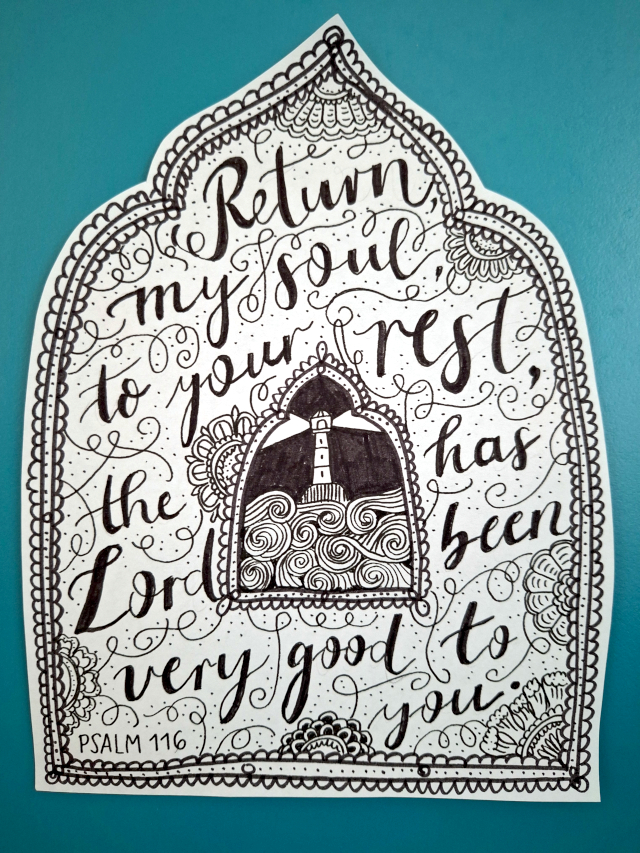 Return,
my soul,
to your rest,
the
Lord
has
been
very good to
you.
PSALM 116